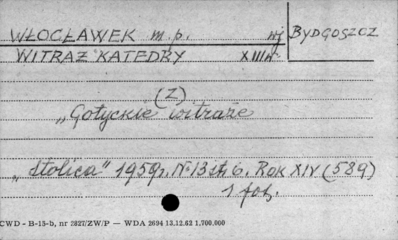 WŁOCŁAWEK m.p. BYDGOSZCZ
WITRAŻ KATEDRY XIII w
(Z)
„Gotyckie witraże
„Stolica" 1959r. Nr 13 st. 6. Rok XIV (589)
1 fot.
CWD - B-15-b, nr 2827/ZW/P — WDA 2694 13.12.62 1.700.000